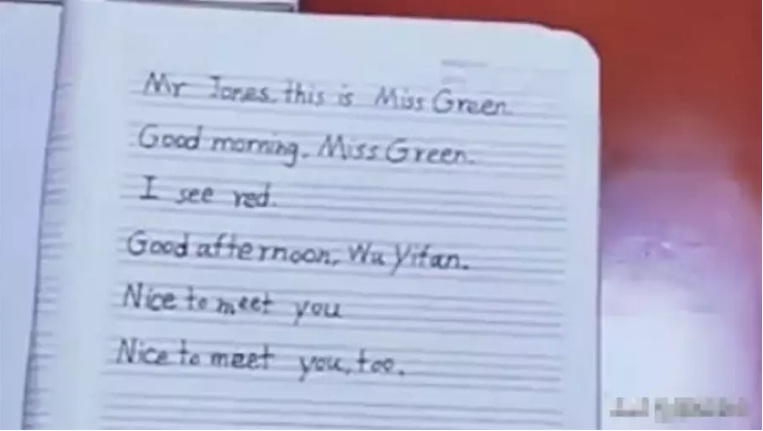 Mr Jones, this is Miss Green.
Good morning, Miss Green.
I see red.
Good afternoon, Wu Yifan.
Nice to meet you
Nice to meet you, too.